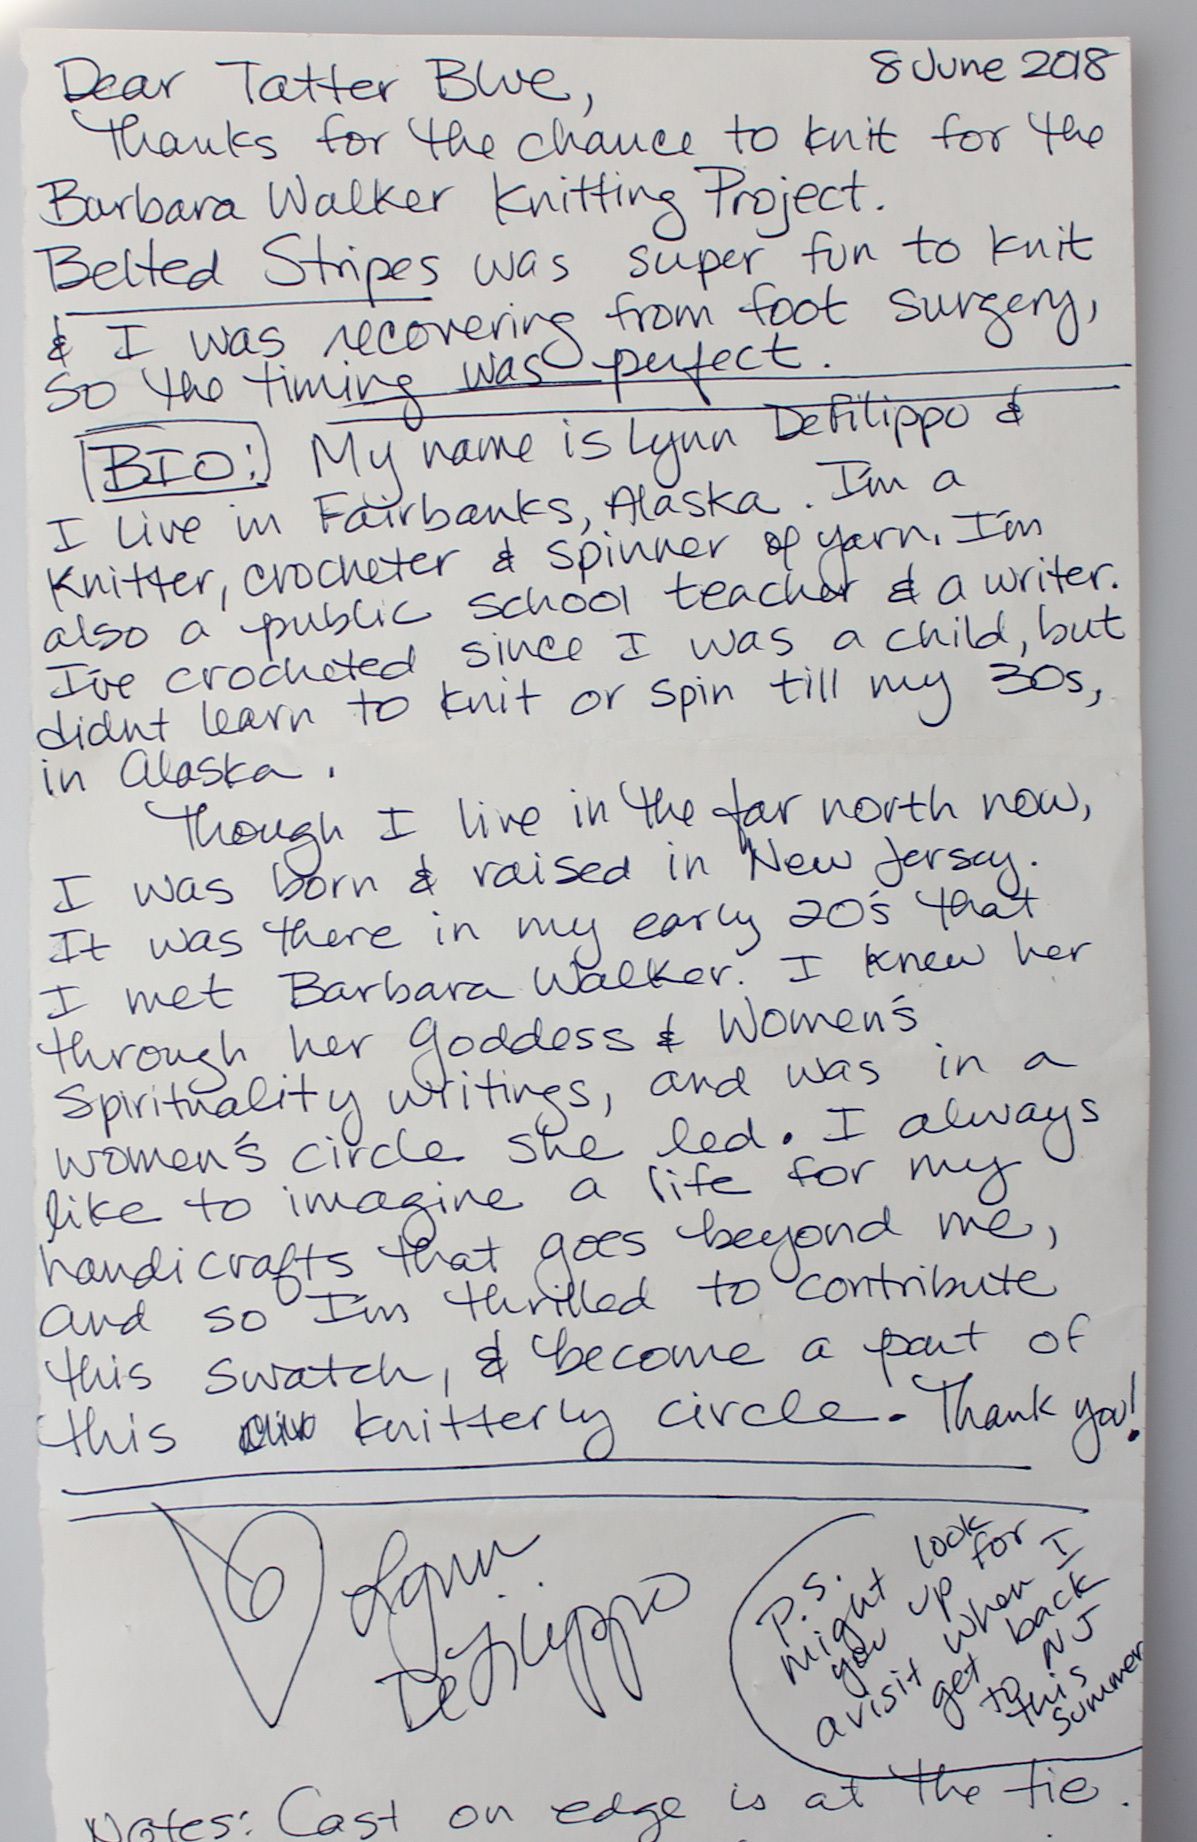 8 June 2018
Dear Tatter Blue,
Thanks for the chance to knit for the
Barbara Walker Knitting Project.
Belted Stripes was super fun to knit
& I was recovering from foot surgery,
so the timing was perfect.
BIO: My name is Lynn DeFilippo &
I live in Fairbanks, Alaska. I'm a
Knitter, crocheter & spinner of yarn. I'm
also a public school teacher & a writer.
I've crocheted since I was a child, but
didnt learn to knit or spin till my 30s,
in Alaska.
Though I live in the far north now,
I was born & raised in New Jersey.
It was there in my early 20's that
I met Barbara Walker. I knew her
through her Goddess & Women's
Spirituality writings, and was in a
women's circle she led. I always
like to imagine a life for my
handicrafts that goes beyond me,
and so I'm thrilled to contribute
this swatch, & become a part of
this knitterly circle. Thank you!
Lynn
DeFilippo
P.S.
might look
you up for
a visit when I
get back
to NJ
this
summer
Notes: Cast on edge is at the tie.